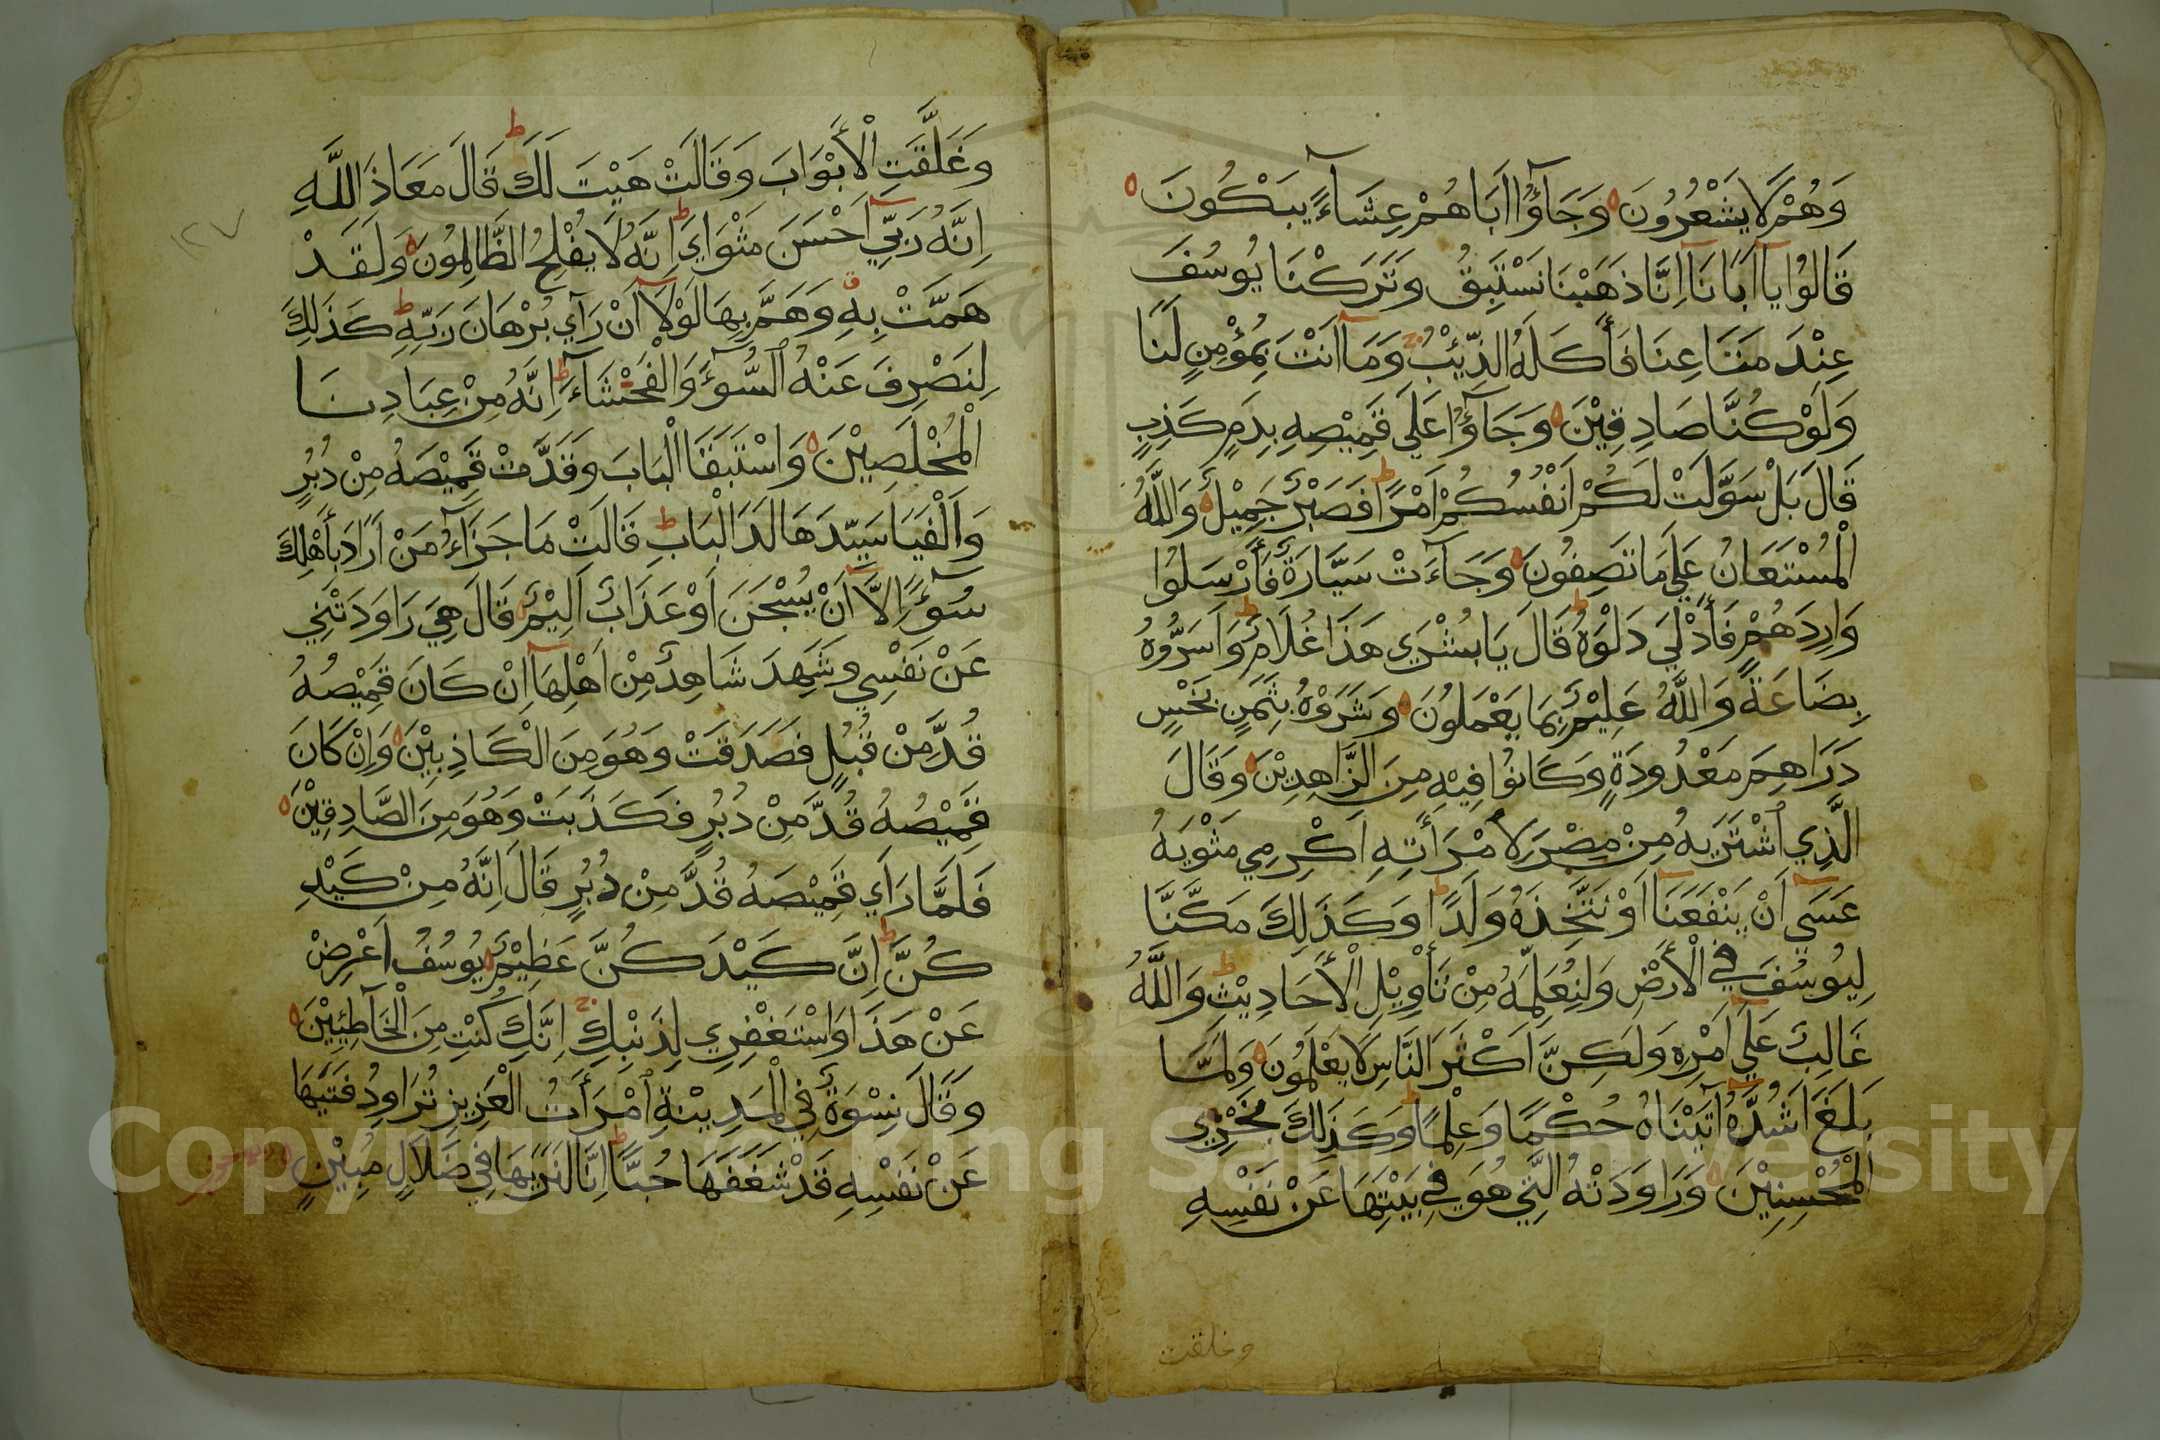 وَهُمْ لَا يَشْعُرُونَ وَجَآؤُا اَبَاهُمْ عِشَآءً يَبْكُونَ
قَالُوا يَآ اَبَانَآ اِنَّا ذَهَبْنَا نَسْتَبِقُ وَتَرَكْنَا يُوسُفَ
عِنْدَ مَتَاعِنَا فَأَكَلَهُ الذِّئْبُ وَمَآ اَنْتَ بِمُؤْمِنٍ لَنَا
وَلَوْ كُنَّا صَادِقِيْنَ وَجَآؤُا عَلَى قَمِيْصِهِ بِدَمٍ كَذِبٍ
قَالَ بَلْ سَوَّلَتْ لَكُمْ اَنْفُسُكُمْ اَمْرًا فَصَبْرٌ جَمِيْلٌ وَاللَّهُ
الْمُسْتَعَانُ عَلَى مَا تَصِفُونَ وَجَآءَتْ سَيَّارَةٌ فَأَرْسَلُوا
وَارِدَهُمْ فَأَدْلَى دَلْوَهُ قَالَ يَا بُشْرَى هَذَا غُلَامٌ وَاَسَرُّوهُ
بِضَاعَةً وَاللَّهُ عَلِيْمٌ بِمَا يَعْمَلُونَ وَشَرَوْهُ بِثَمَنٍ بَخْسٍ
دَرَاهِمَ مَعْدُودَةٍ وَكَانُوا فِيْهِ مِنَ الزَّاهِدِيْنَ وَقَالَ
الَّذِي اشْتَرَيهُ مِنْ مِصْرَ لِامْرَأَتِهِ اَكْرِمِي مَثْوَيهُ
عَسَى اَنْ يَنْفَعَنَآ اَوْ نَتَّخِذَهُ وَلَدًا وَكَذَلِكَ مَكَّنَّا
لِيُوسُفَ فِي الْأَرْضِ وَلِنُعَلِّمَهُ مِنْ تَأْوِيْلِ الْأَحَادِيْثِ وَاللَّهُ
غَالِبٌ عَلَى اَمْرِهِ وَلَكِنَّ اَكْثَرَ النَّاسِ لَا يَعْلَمُونَ وَلَمَّا
بَلَغَ اَشُدَّهُ اٰتَيْنَاهُ حُكْمًا وَعِلْمًا وَكَذَلِكَ نَجْزِي
الْمُحْسِنِيْنَ وَرَاوَدَتْهُ الَّتِي هُوَ فِي بَيْتِهَا عَنْ نَفْسِهِ
وغلقت
وَغَلَّقَتِ الْأَبْوَابَ وَقَالَتْ هَيْتَ لَكَ قَالَ مَعَاذَ اللَّهِ
اِنَّهُ رَبِّي اَحْسَنَ مَثْوَايَ اِنَّهُ لَا يُفْلِحُ الظَّالِمُونَ وَلَقَدْ
هَمَّتْ بِهِ وَهَمَّ بِهَا لَوْلَآ اَنْ رَآى بُرْهَانَ رَبِّهِ كَذَلِكَ
لِنَصْرِفَ عَنْهُ السُّوٓءَ وَالْفَحْشَآءَ اِنَّهُ مِنْ عِبَادِنَا
الْمُخْلَصِيْنَ وَاسْتَبَقَا الْبَابَ وَقَدَّتْ قَمِيْصَهُ مِنْ دُبُرٍ
وَاَلْفَيَا سَيِّدَهَا لَدَا الْبَابِ قَالَتْ مَا جَزَآءُ مَنْ اَرَادَ بِأَهْلِكَ
سُوٓءًا اِلَّآ اَنْ يُسْجَنَ اَوْ عَذَابٌ اَلِيْمٌ قَالَ هِيَ رَاوَدَتْنِي
عَنْ نَفْسِي وَشَهِدَ شَاهِدٌ مِنْ اَهْلِهَآ اِنْ كَانَ قَمِيْصُهُ
قُدَّ مِنْ قُبُلٍ فَصَدَقَتْ وَهُوَ مِنَ الْكَاذِبِيْنَ وَاِنْ كَانَ
قَمِيْصُهُ قُدَّ مِنْ دُبُرٍ فَكَذَبَتْ وَهُوَ مِنَ الصَّادِقِيْنَ
فَلَمَّا رَاَى قَمِيْصَهُ قُدَّ مِنْ دُبُرٍ قَالَ اِنَّهُ مِنْ كَيْدِ
كُنَّ اِنَّ كَيْدَكُنَّ عَظِيْمٌ يُوسُفُ اَعْرِضْ
عَنْ هَذَا وَاسْتَغْفِرِي لِذَنْبِكِ اِنَّكِ كُنْتِ مِنَ الْخَاطِئِيْنَ
وَقَالَ نِسْوَةٌ فِي الْمَدِيْنَةِ امْرَأَتُ الْعَزِيزِ تُرَاوِدُ فَتَيهَا
عَنْ نَفْسِهِ قَدْ شَغَفَهَا حُبًّا اِنَّا لَنَرَيهَا فِي ضَلَالٍ مُبِيْنٍ
١٢٧
Copyright © King Saud University